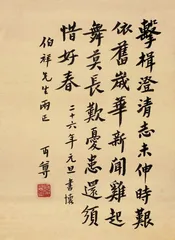 擊楫澄清志未伸時艱
依舊歲華新聞雞起
舞莫長歎憂患還須
惜好春
二十六年元旦書懷
伯祥先生兩正
丏尊